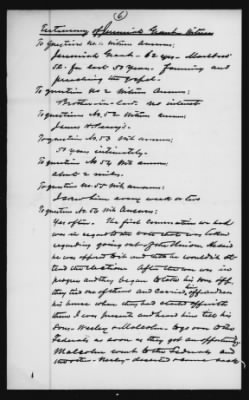 6
Testimony of Jeremiah Grant Witness
To question No. 1 Witness answers;
Jeremiah Grant - 62 yrs -
for last 50 years. Farming and
preaching the gospel.
To question No 2 Witness Answers;
Brother in-law. no interest
To question No. 52 Witness answers
James H
To question No. 53 Wit answers;
50 years intimately.
To question No 54 Wit answers;
about 2 miles.
To question No. 55 Wit answers;
I saw him every week or two
To question No. 56 Wit Answers;
Yes often. The first conversation we had
was in regard to the
regarding going out of the Union. He said
he was opposed to it and told he wouldn't at
tend the election. After the war was in
progress and they began to take his sons off
they tied one of them and carried him off and from
his house when they had
them I was present and heard him tell his
sons. Wesley & Malcolm. to go over to the
Federals as soon as they got an opportunity
Malcolm went to the Federals and
the other - Wesley - deserted & came back